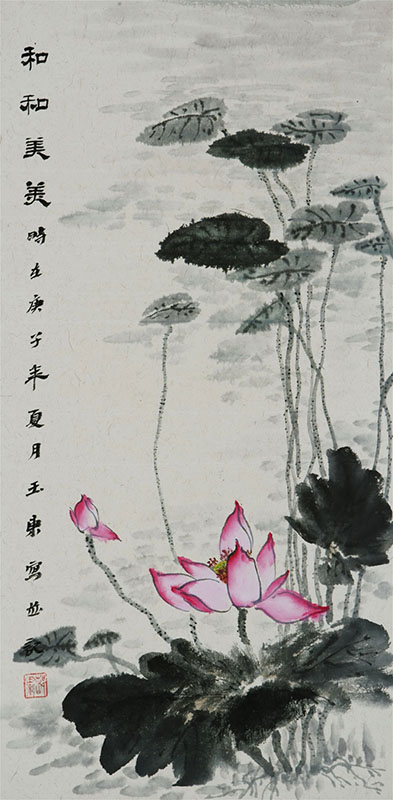 和和美美時在庚子年夏月玉東寫並記